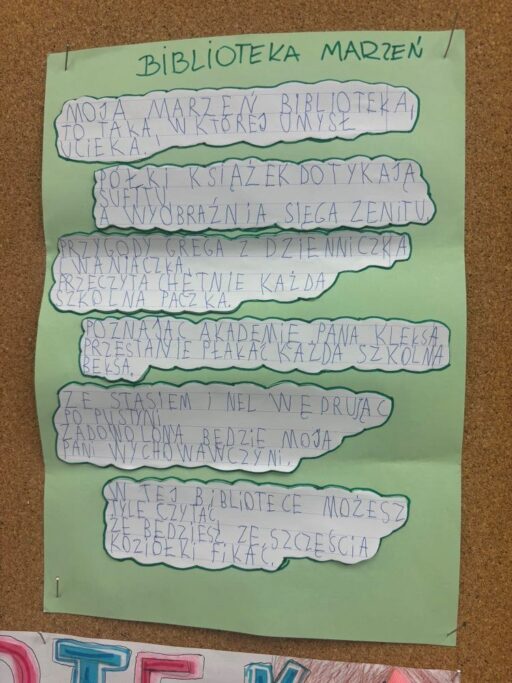 BIBLIOTEKA MARZEŃ
MOJA MARZEŃ BIBLIOTEKA,
TO TAKA, W KTÓREJ UMYSŁ
UCIEKA.
PÓŁKI KSIĄŻEK DOTYKAJĄ
SUFITU,
A WYOBRAŹNIA SIĘGA ZENITU.
PRZYGODY GREGA Z DZIENNICZKA
CWANIACZKA,
PRZECZYTA CHĘTNIE KAŻDA
SZKOLNA PACZKA.
POZNAJĄC AKADEMIĘ PANA KLEKSA,
PRZESTANIE PŁAKAĆ KAŻDA SZKOLNA
BEKSA.
ZE STASIEM I NEL WĘDRUJĄC
PO PUSTYNI,
ZADOWOLONA BĘDZIE MOJA
PANI WYCHOWAWCZYNI.
W TEJ BIBLIOTECE MOŻESZ
TYLE CZYTAĆ,
ŻE BĘDZIESZ ZE SZCZĘŚCIA
KOZIOŁKI FIKAĆ.